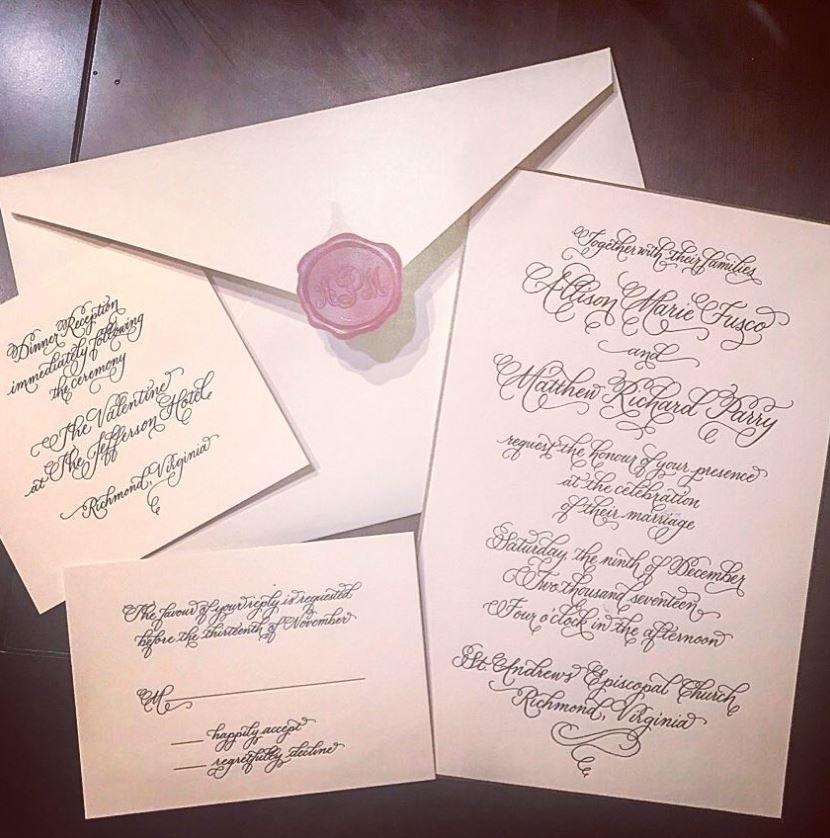 Together with their families
Allison Marie Fusco
and
Matthew Richard Parry
request the honour of your presence
at the celebration
of their marriage
Saturday the ninth of December
Two thousand seventeen
Four o'clock in the afternoon
St. Andrews Episcopal Church
Richmond, Virginia
Dinner Reception
immediately following
the ceremony
The Valentine
at The Jefferson Hotel
Richmond, Virginia
The favour of your reply is requested
before the thirteenth of November
M
happily accept
regretfully decline
APM